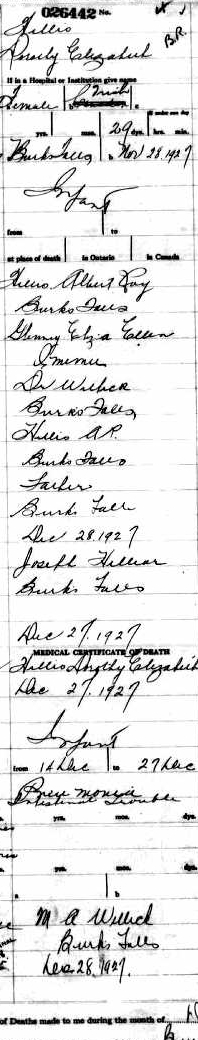 026442 No.
Hillis
Dorothy Elizabeth
B.R.
If in a Hospital or Institution give name
Female Irish
yrs. mos. 29 dys. hrs. min.
Burks Falls Nov 28, 1927
Infant
from to
at place of death in Ontario in Canada
Hillis Albert Roy
Burks Falls
Eliza Ellen
Dr Willick
Burks Falls
Hillis A R.
Burks Falls
Father
Burks Falls
Dec 28, 1927
Joseph Hilliar
Burks Falls
Dec 27, 1927
MEDICAL CERTIFICATE OF DEATH
Hillis Dorothy Elizabeth
Dec 27, 1927
Infant
from 14 Dec to 27 Dec
Intestinal Trouble
yrs. mos. dys.
yrs. mos. dys.
a b
M A Willick
Burks Falls
Dec 28, 1927.
of Deaths made to me during the month of